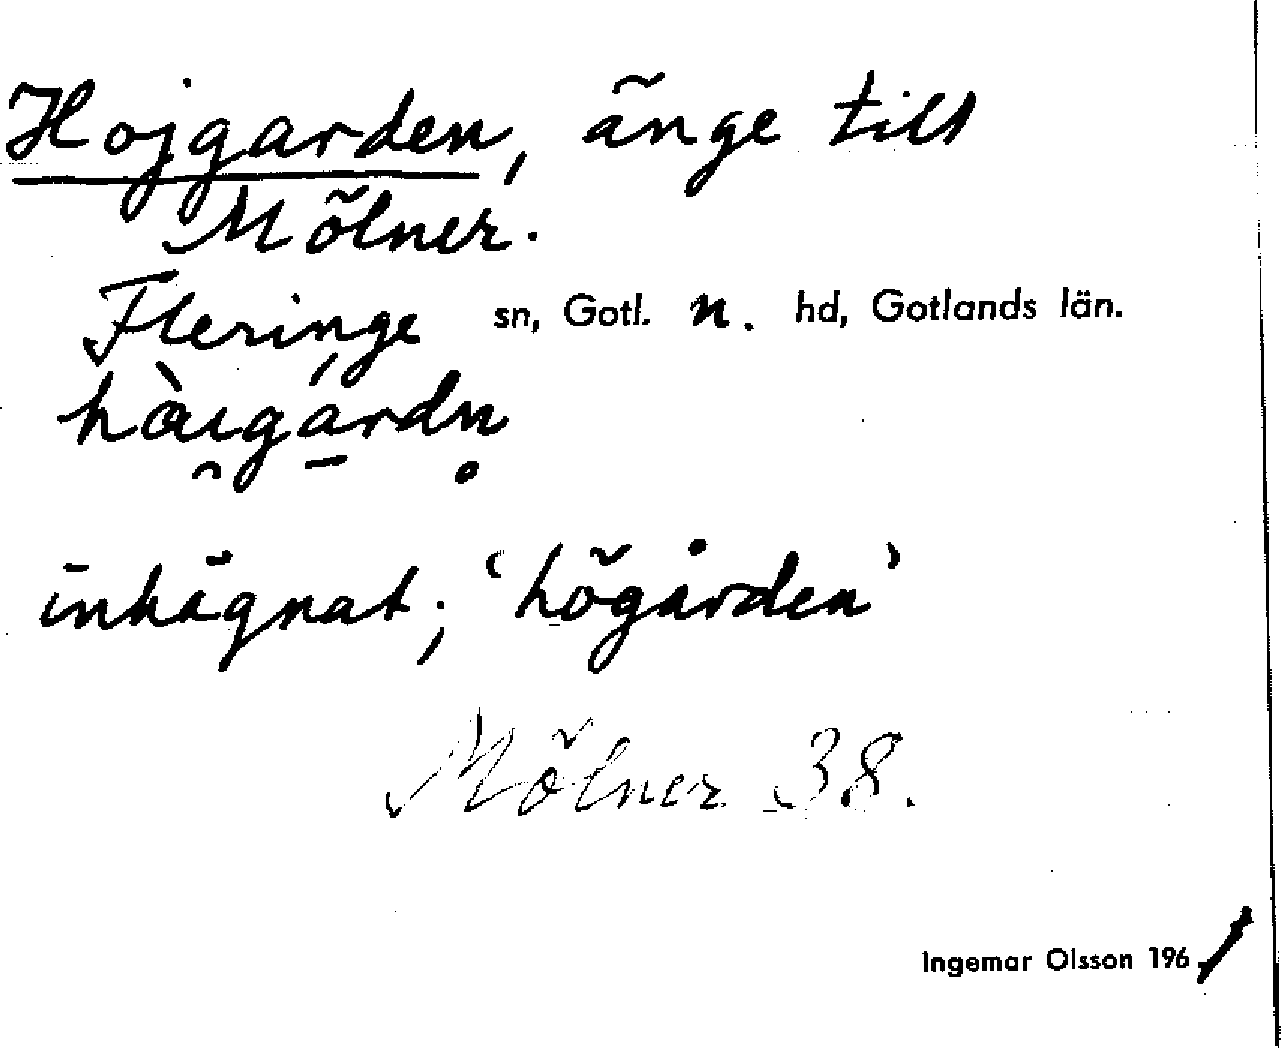 Hojgarden, änge till
Mölner.
Fleringe sn, Gotl. n. hd, Gotlands län.
inhägnat; 'högården'
Mölner 38.
Ingemar Olsson 1961